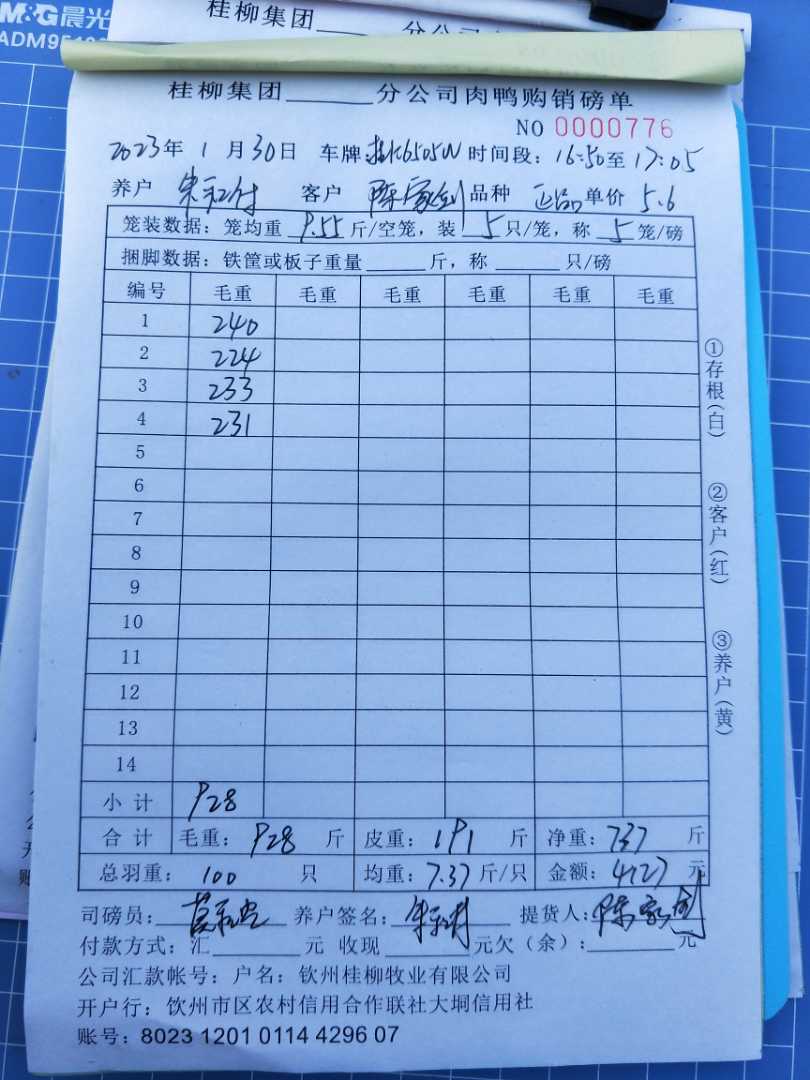 M&G晨光
桂柳集团
桂柳集团______分公司肉鸭购销磅单
NO 0000776
2023年 1 月 30日 车牌: 6505W 时间段: 16:50至 17:05
养户 客户 陈家剑 品种 正品 单价 5.6
笼装数据: 笼均重 9.55 斤/空笼, 装 5 只/笼, 称 5 笼/磅
捆脚数据: 铁筐或板子重量______斤, 称______只/磅
编号 毛重 毛重 毛重 毛重 毛重 毛重
1 240
2 224
3 233
4 231
5
6
7
8
9
10
11
12
13
14
小计 928
合计 毛重: 928 斤 皮重: 191 斤 净重: 737 斤
总羽重: 100 只 均重: 7.37 斤/只 金额: 4127 元
司磅员: 养户签名: 提货人: 陈家剑
付款方式: 汇______元 收现______元欠(余): ______元
公司汇款帐号: 户名: 钦州桂柳牧业有限公司
开户行: 钦州市区农村信用合作联社大垌信用社
账号: 8023 1201 0114 4296 07
①存根(白)
②客户(红)
③养户(黄)